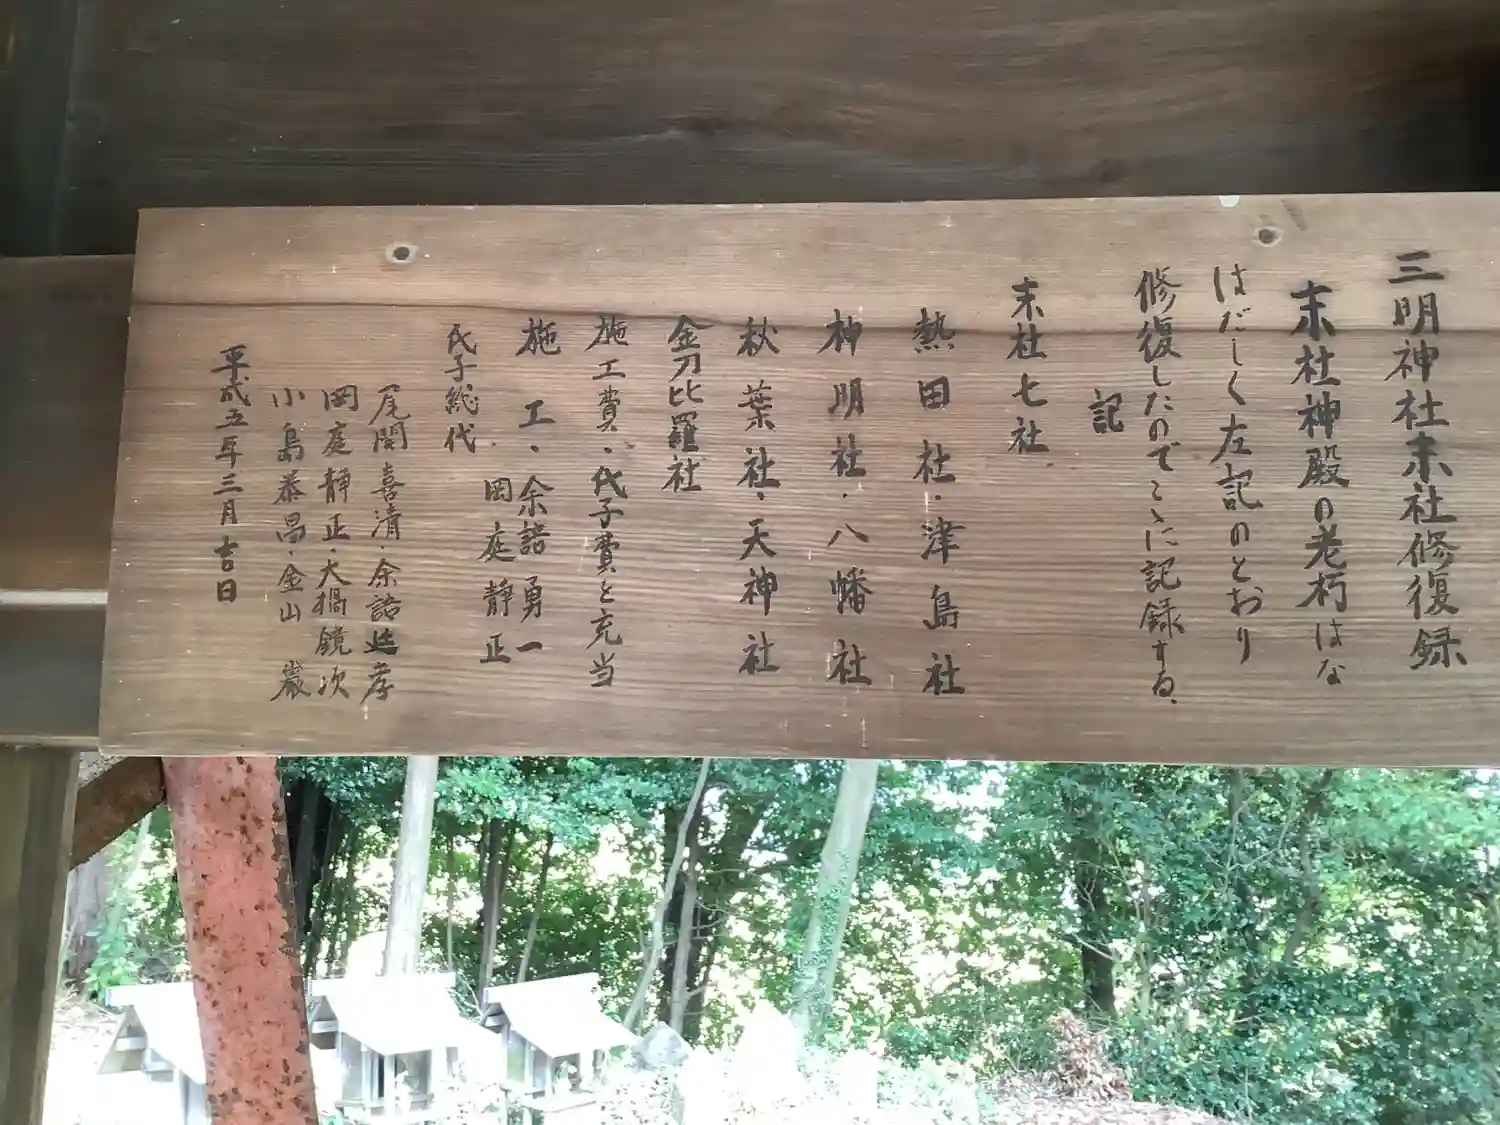 三明神社末社修復録
末社神殿の老朽はな
はだしく左記のとおり
修復したのでこゝに記録する、
記
末社七社
熱田社・津島社
神明社・八幡社
秋葉社・天神社
金刀比羅社
施工費・氏子費と充当
施工・余語勇一
岡庭静正
氏子総代
尾関喜清・余語延孝
岡庭静正・大橋鏡次
小島恭昌・金山巌
平成五年三月吉日